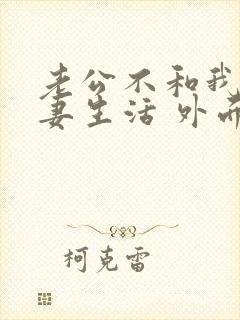 老公不和我
妻生活 外面
柯克雷